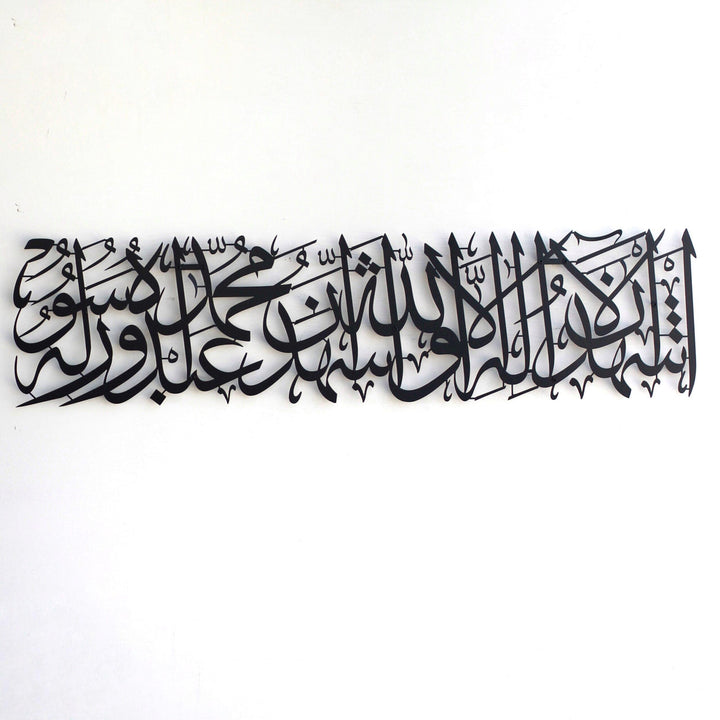 اشهد ان لا اله الا الله واشهد ان محمدا عبده ورسوله